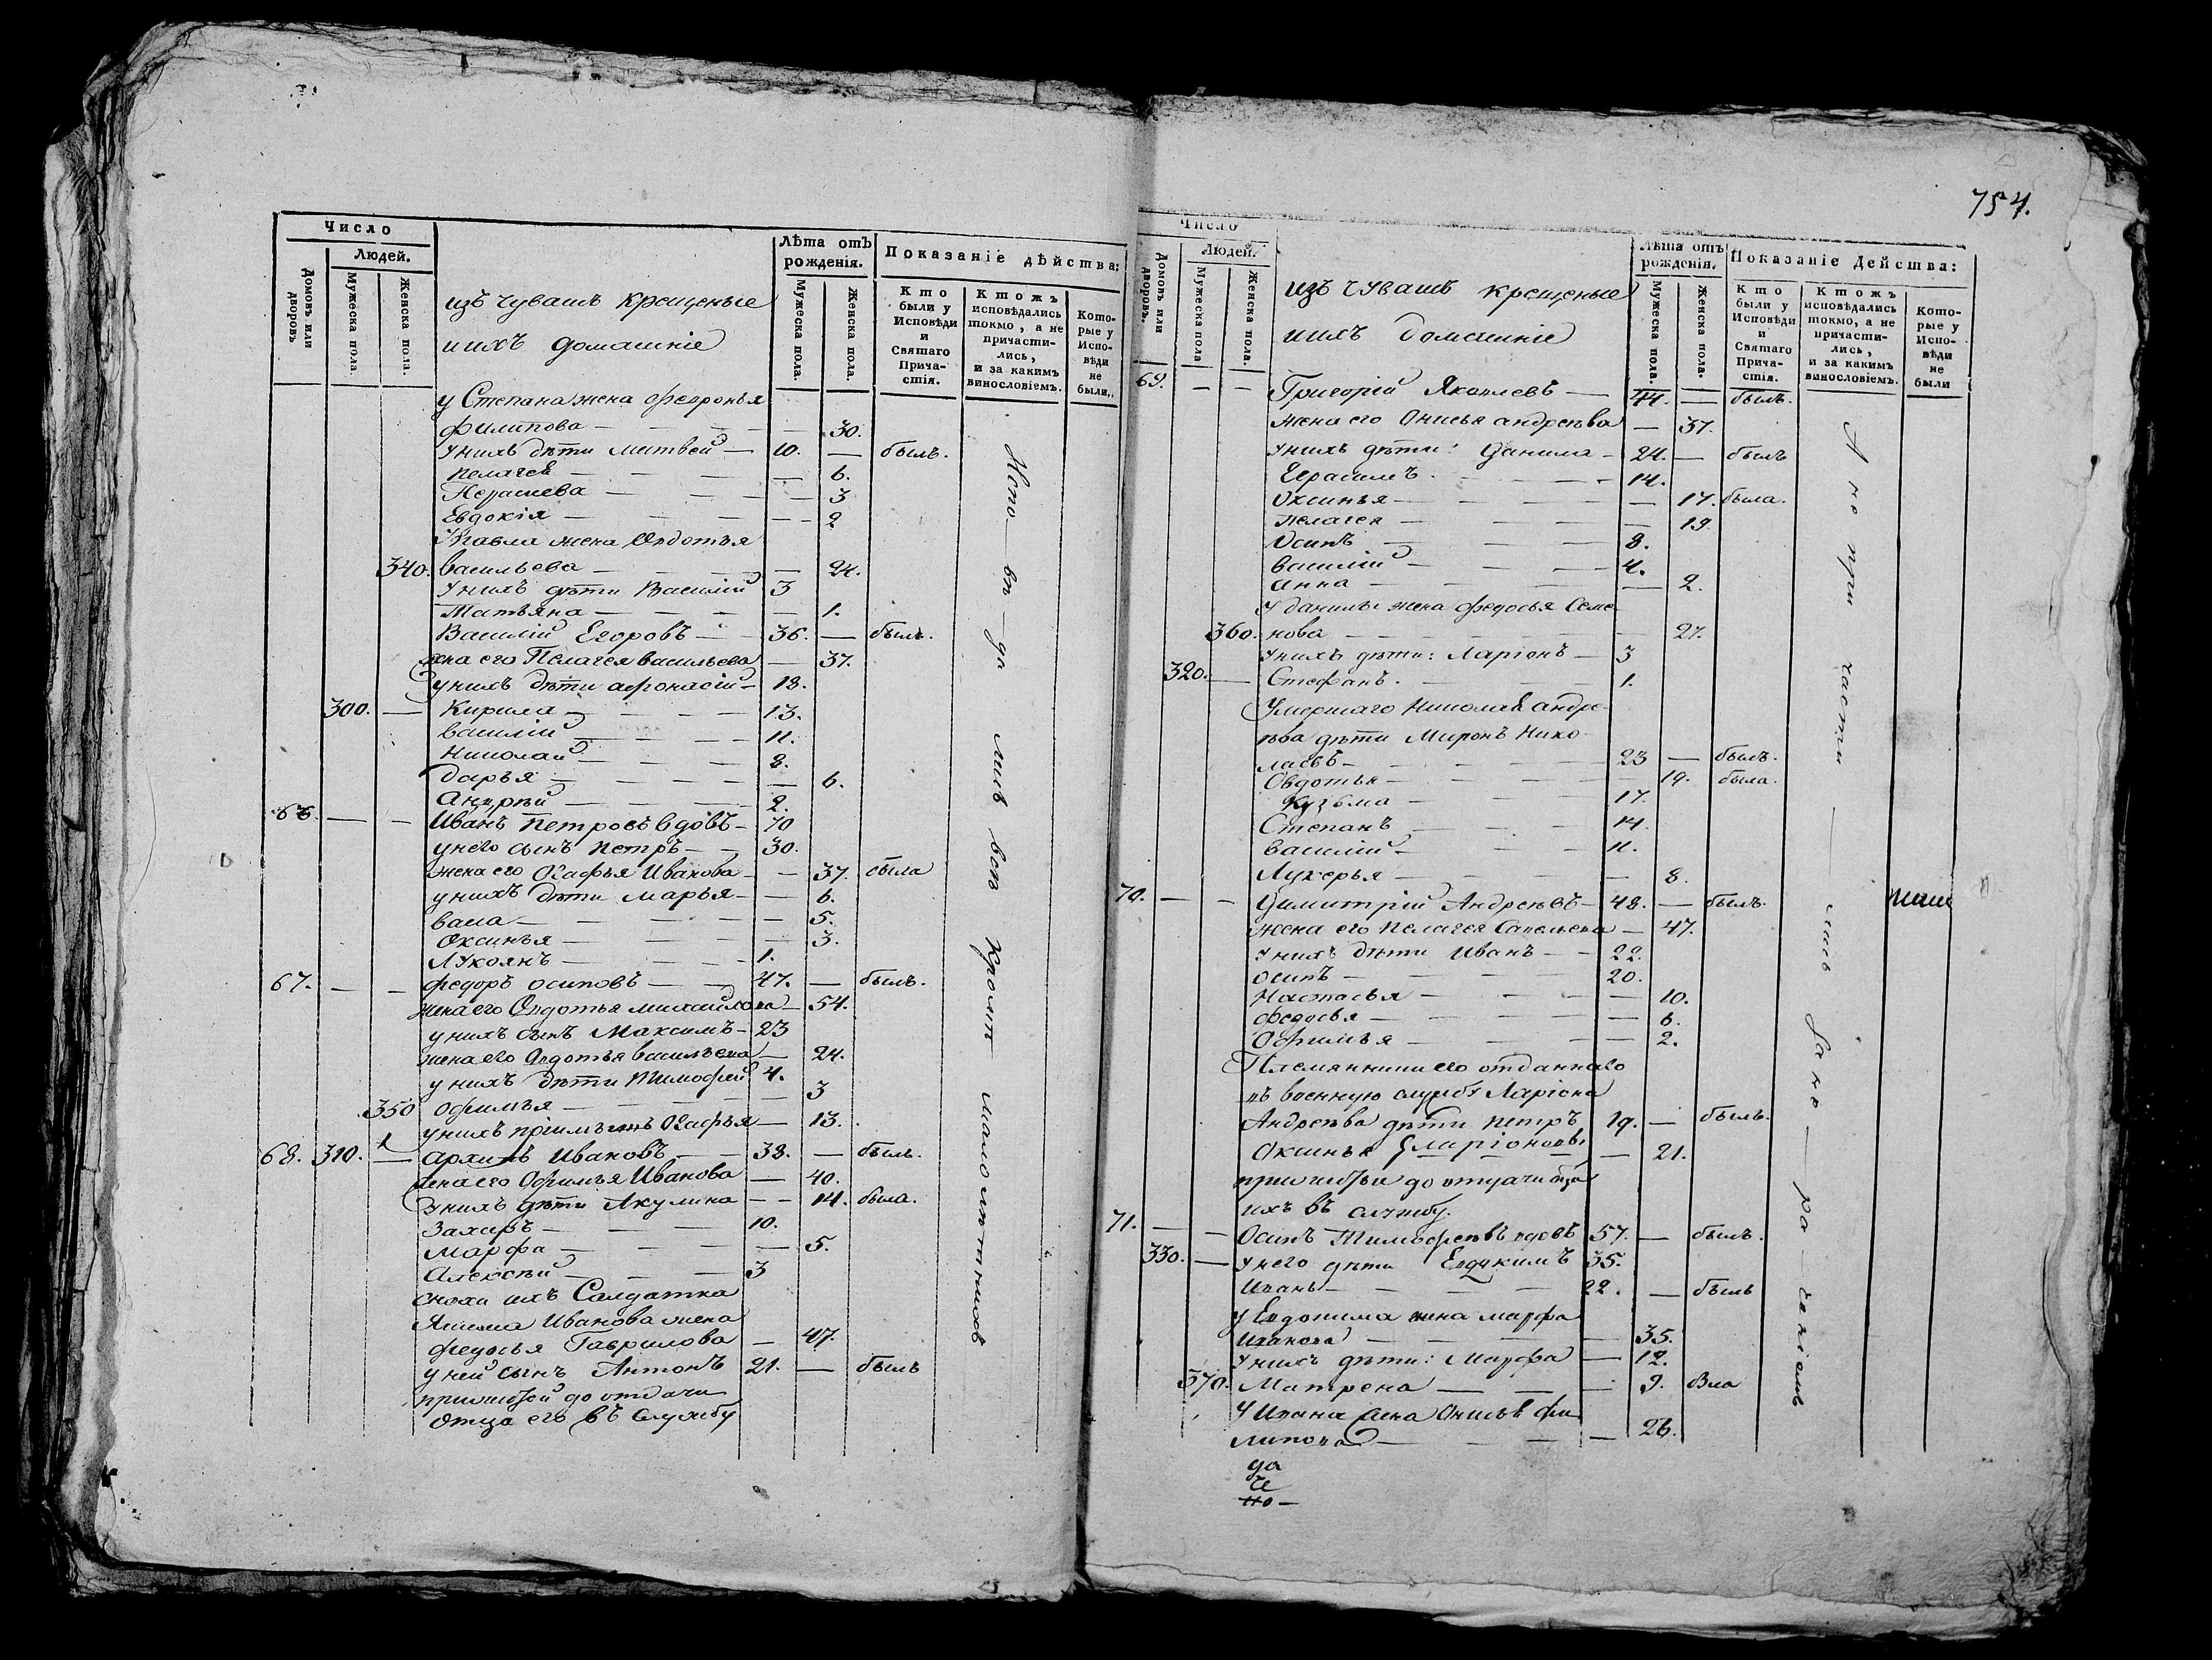 754.
Число
Людей.
Домовъ или дворовъ.
Мужеска пола.
Женска пола.
изъ чувашъ крещеные
и ихъ домашніе
Лѣта отъ рожденія.
Мужеска пола.
Женска пола.
Показаніе дѣйства:
Кто были у Исповѣди и Святаго Причастія.
Ктожъ исповѣдались токмо, а не причастились, и за какимъ винословіемъ.
Которые у Исповѣди не были,.
у Степана жена Февронья
Филипова — 30.
у нихъ дѣти Матвей — 10. — былъ.
Пелагея — 6.
— 3
Евдокія — 2
У Павла жена Овдотья
340. Васильева — 24.
у нихъ дѣти Василій 3
Татьяна — 1.
Василій Егоровъ — 36. — былъ.
жена его Пелагея Васильева — 37.
у нихъ дѣти Афонасій — 18.
300. — Кирила — 13.
Василій — 11.
Николай — 8.
Дарья — 6.
Андрѣй — 2.
66. — — Иванъ Петровъ вдовъ — 70
у него сынъ Петръ — 30.
жена его Агафья Иванова — 37. была
у нихъ дѣти Марья — 6.
— 5.
Оксинья — 3.
Лукоянъ — 1.
67. — — Федоръ Осиповъ — 47. — былъ.
жена его Овдотья Михайлова — 54.
у нихъ сынъ Максимъ — 23
жена его Овдотья Васильева — 24.
у нихъ дѣти Тимофей 4.
350 Офимья — 3
у нихъ Агафья — 13.
68. 310. — Архипъ Ивановъ — 38. — былъ.
жена его Офимья Иванова — 40.
у нихъ дѣти Акулина — 14. была.
Захаръ — 10.
Марфа — 5.
Алексѣй — 3
сноха ихъ Салдатка
Иванова жена
Федосья Гаврилова — 47.
у ней сынъ Антонъ 21. — былъ
прижитой до отдачи
отца его въ службу
Испо — вѣ — да лись всѣ Кромѣ малолѣтнихъ
Число
Людей.
Домовъ или дворовъ.
Мужеска пола
Женска пола.
изъ чувашъ крещеные
и ихъ домашніе
Лѣта отъ рожденія.
Мужеска пола.
Женска пола.
Показаніе Действа:
Кто были у Исповѣди и Святаго Причастія.
Ктожъ исповѣдались токмо, а не причастились, и за какимъ винословіемъ.
Которые у Исповѣди не были
69. — — Григорій Яковлевъ — 44. — былъ.
жена его Онисья Андреѣва — 37.
у нихъ дѣти: Данила — 24. — былъ
Герасимъ. — 14.
Оксинья — 17. была.
Пелагея — 19.
Осипъ — 8.
Василій — 4.
Анна — 2.
у Данилы жена Федосья Семе
360. нова — 27.
у нихъ дѣти: Ларіонъ — 3
320. — Стефанъ. — 1.
Умершаго Николая Андре
ѣва дѣти Миронъ Нико
лаевъ — 23 — былъ.
Овдотья — 19. была.
Кузьма — 17.
Степанъ — 14.
Василій — 11.
Лукерья — 8.
70. — — Димитрій Андреѣвъ — 48. — былъ.
жена его Пелагея Савельева — 47.
у нихъ дѣти Иванъ — 22.
Осипъ — 20.
Настасья — 10.
Федосья — 6.
Офимья — 2.
Племянники его отданнаго
въ военную службу Ларіона
Андреѣва дѣти Петръ 19. — былъ.
Оксинья Ларіоновы — 21.
прижитыя до отдачи отца
ихъ въ службу.
71. — — Осипъ Тимофеѣвъ вдовъ 57. — былъ.
330. — у него дѣти Евдокимъ 35.
Иванъ — 22. — былъ
у Евдокима жена Марфа
Иванова — 35.
у нихъ дѣти: Марфа — 12.
370. Матрена — 9. Вла
у Ивана жена Онисья Фи
липова — 26.
да
но —
А не при части — лись за не — ра — ченіемъ